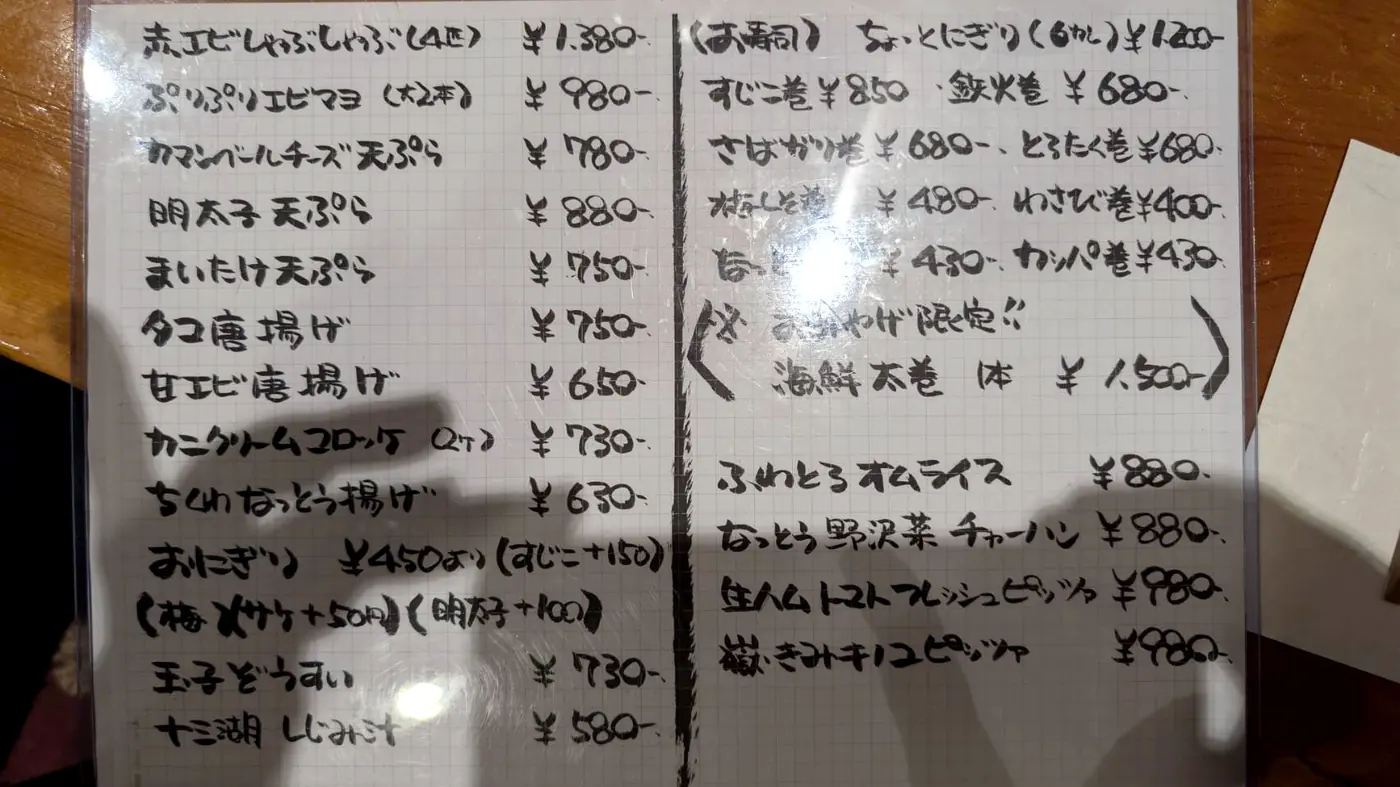 赤エビしゃぶしゃぶ(4匹) ¥1.380-
ぷりぷりエビマヨ (大2本) ¥980-
カマンベールチーズ天ぷら ¥780-
明太子天ぷら ¥880-
まいたけ天ぷら ¥750-
タコ唐揚げ ¥750-
甘エビ唐揚げ ¥650-
カニクリームコロッケ (2ケ) ¥730-
ちくわなっとう揚げ ¥630-
おにぎり ¥450より(すじこ+150)
(梅)(サケ+50円)(明太子+100)
玉子ぞうすい ¥730-
十三湖 しじみ汁 ¥580-
(お寿司) ちょっとにぎり(6カン)¥1.200-
すじこ巻¥850 ・鉄火巻 ¥680-
さばガリ巻¥680-、とろたく巻¥680-
しそ巻 ¥480-、わさび巻¥400-
¥430-、カッパ巻¥430-
※ おみやげ限定!!
海鮮太巻 1本 ¥1,500-
ふわとろオムライス ¥880-
なっとう野沢菜チャーハン ¥880-
生ハムトマトフレッシュピッツァ ¥980-
嶽きみキノコピッツァ ¥980-